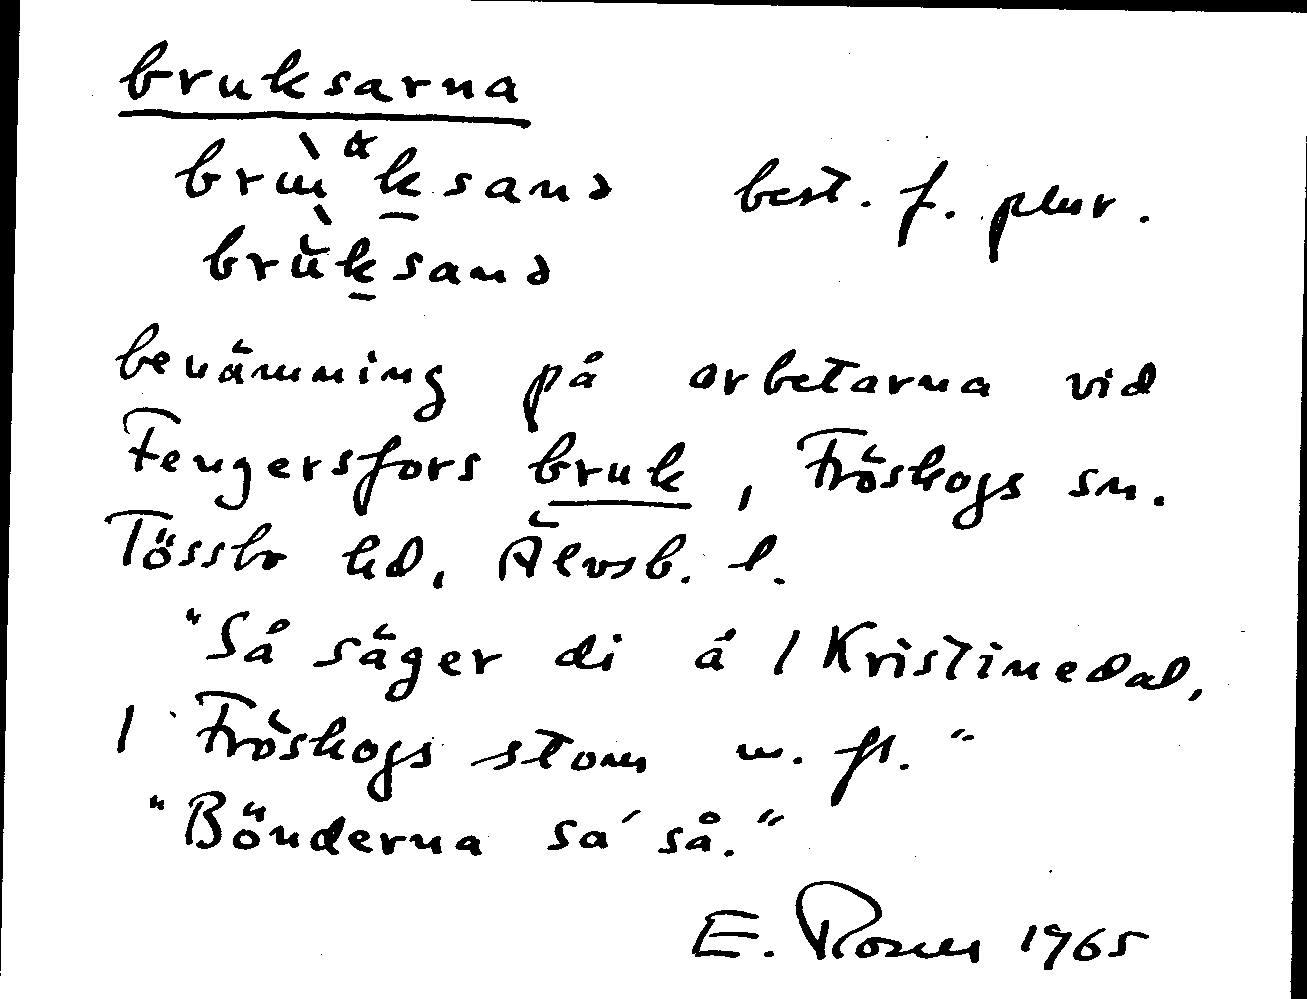 bruksarna
brùksanə best. f. plur.
brùksanə
benämning på arbetarna vid
Fengersfors bruk, Fröskogs sn.
Tössbo hd, Älvsb. l.
"Så säger di å i Kristinedal,
i Fröskogs stom m. fl."
"Bönderna sa' så."
E. Rosen 1965